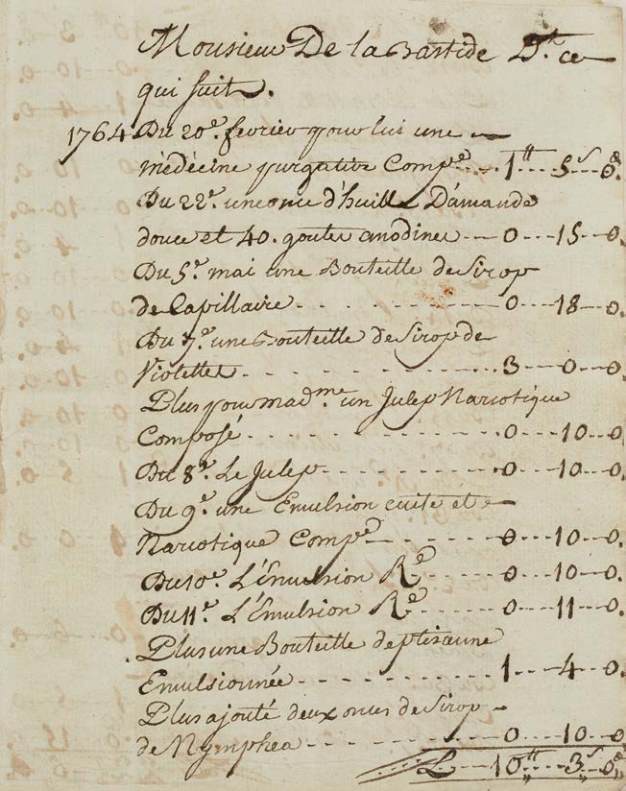 Monsieur De la Bastide D.t ce
qui suit.
1764 Du 20e. fevrier pour lui une
médécine purgative Compée. . . 1tt . . 5s . . 0d.
Du 22e. une once d'huille D'amande
douce et 40. goutes anodines - - 0 - - 15 - - 0.
Du 5e. mai une Bouteille de Sirop
de Capillaire - - - 0 - - 18 - - 0.
Du 7e. une Bouteille de Sirop de
Violettes - - - 3 - - 0 - - 0.
Plus pour madme. un Julep Narcotique
Composé - - - 0 - - 10 - - 0
Du 8e. Le Julep - - - 0 - - 10 - - 0.
Du 9e. une Emulsion cuite et
Narcotique Compée - - - 0 - - 10 - - 0.
Du 10e. L'Emulsion Rée - - - 0 - - 10 - - 0.
Du 11e. L'Emulsion Rée - - - 0 - - 11 - - 0.
Plus une Bouteille de ptisanne
Emulsionnée - - - 1 - - 4 - - 0.
Plus ajouté deux onces de Sirop
de Nymphea - - - 0 - - 10 - - 0.
L - - 10tt - - 3s - - 0d